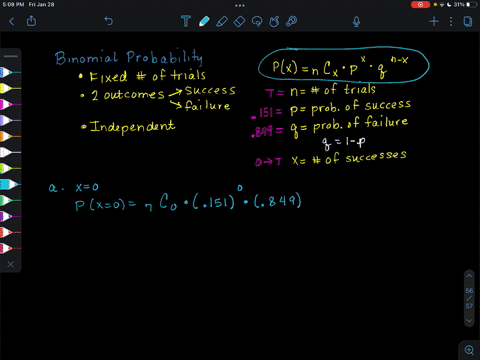 5:08 PM Fri Jan 28
31%
Binomial Probability
• Fixed # of trials
• 2 outcomes → Success
→ failure
• Independent
P(x) = n C x • p^x • q^n-x
7 = n = # of trials
.151 = p = prob. of success
.849 = q = prob. of failure
q = 1-p
0→7 x = # of successes
a. x=0
P(x=0) = 7 C 0 • (.151)^0 • (.849)
56
/
57